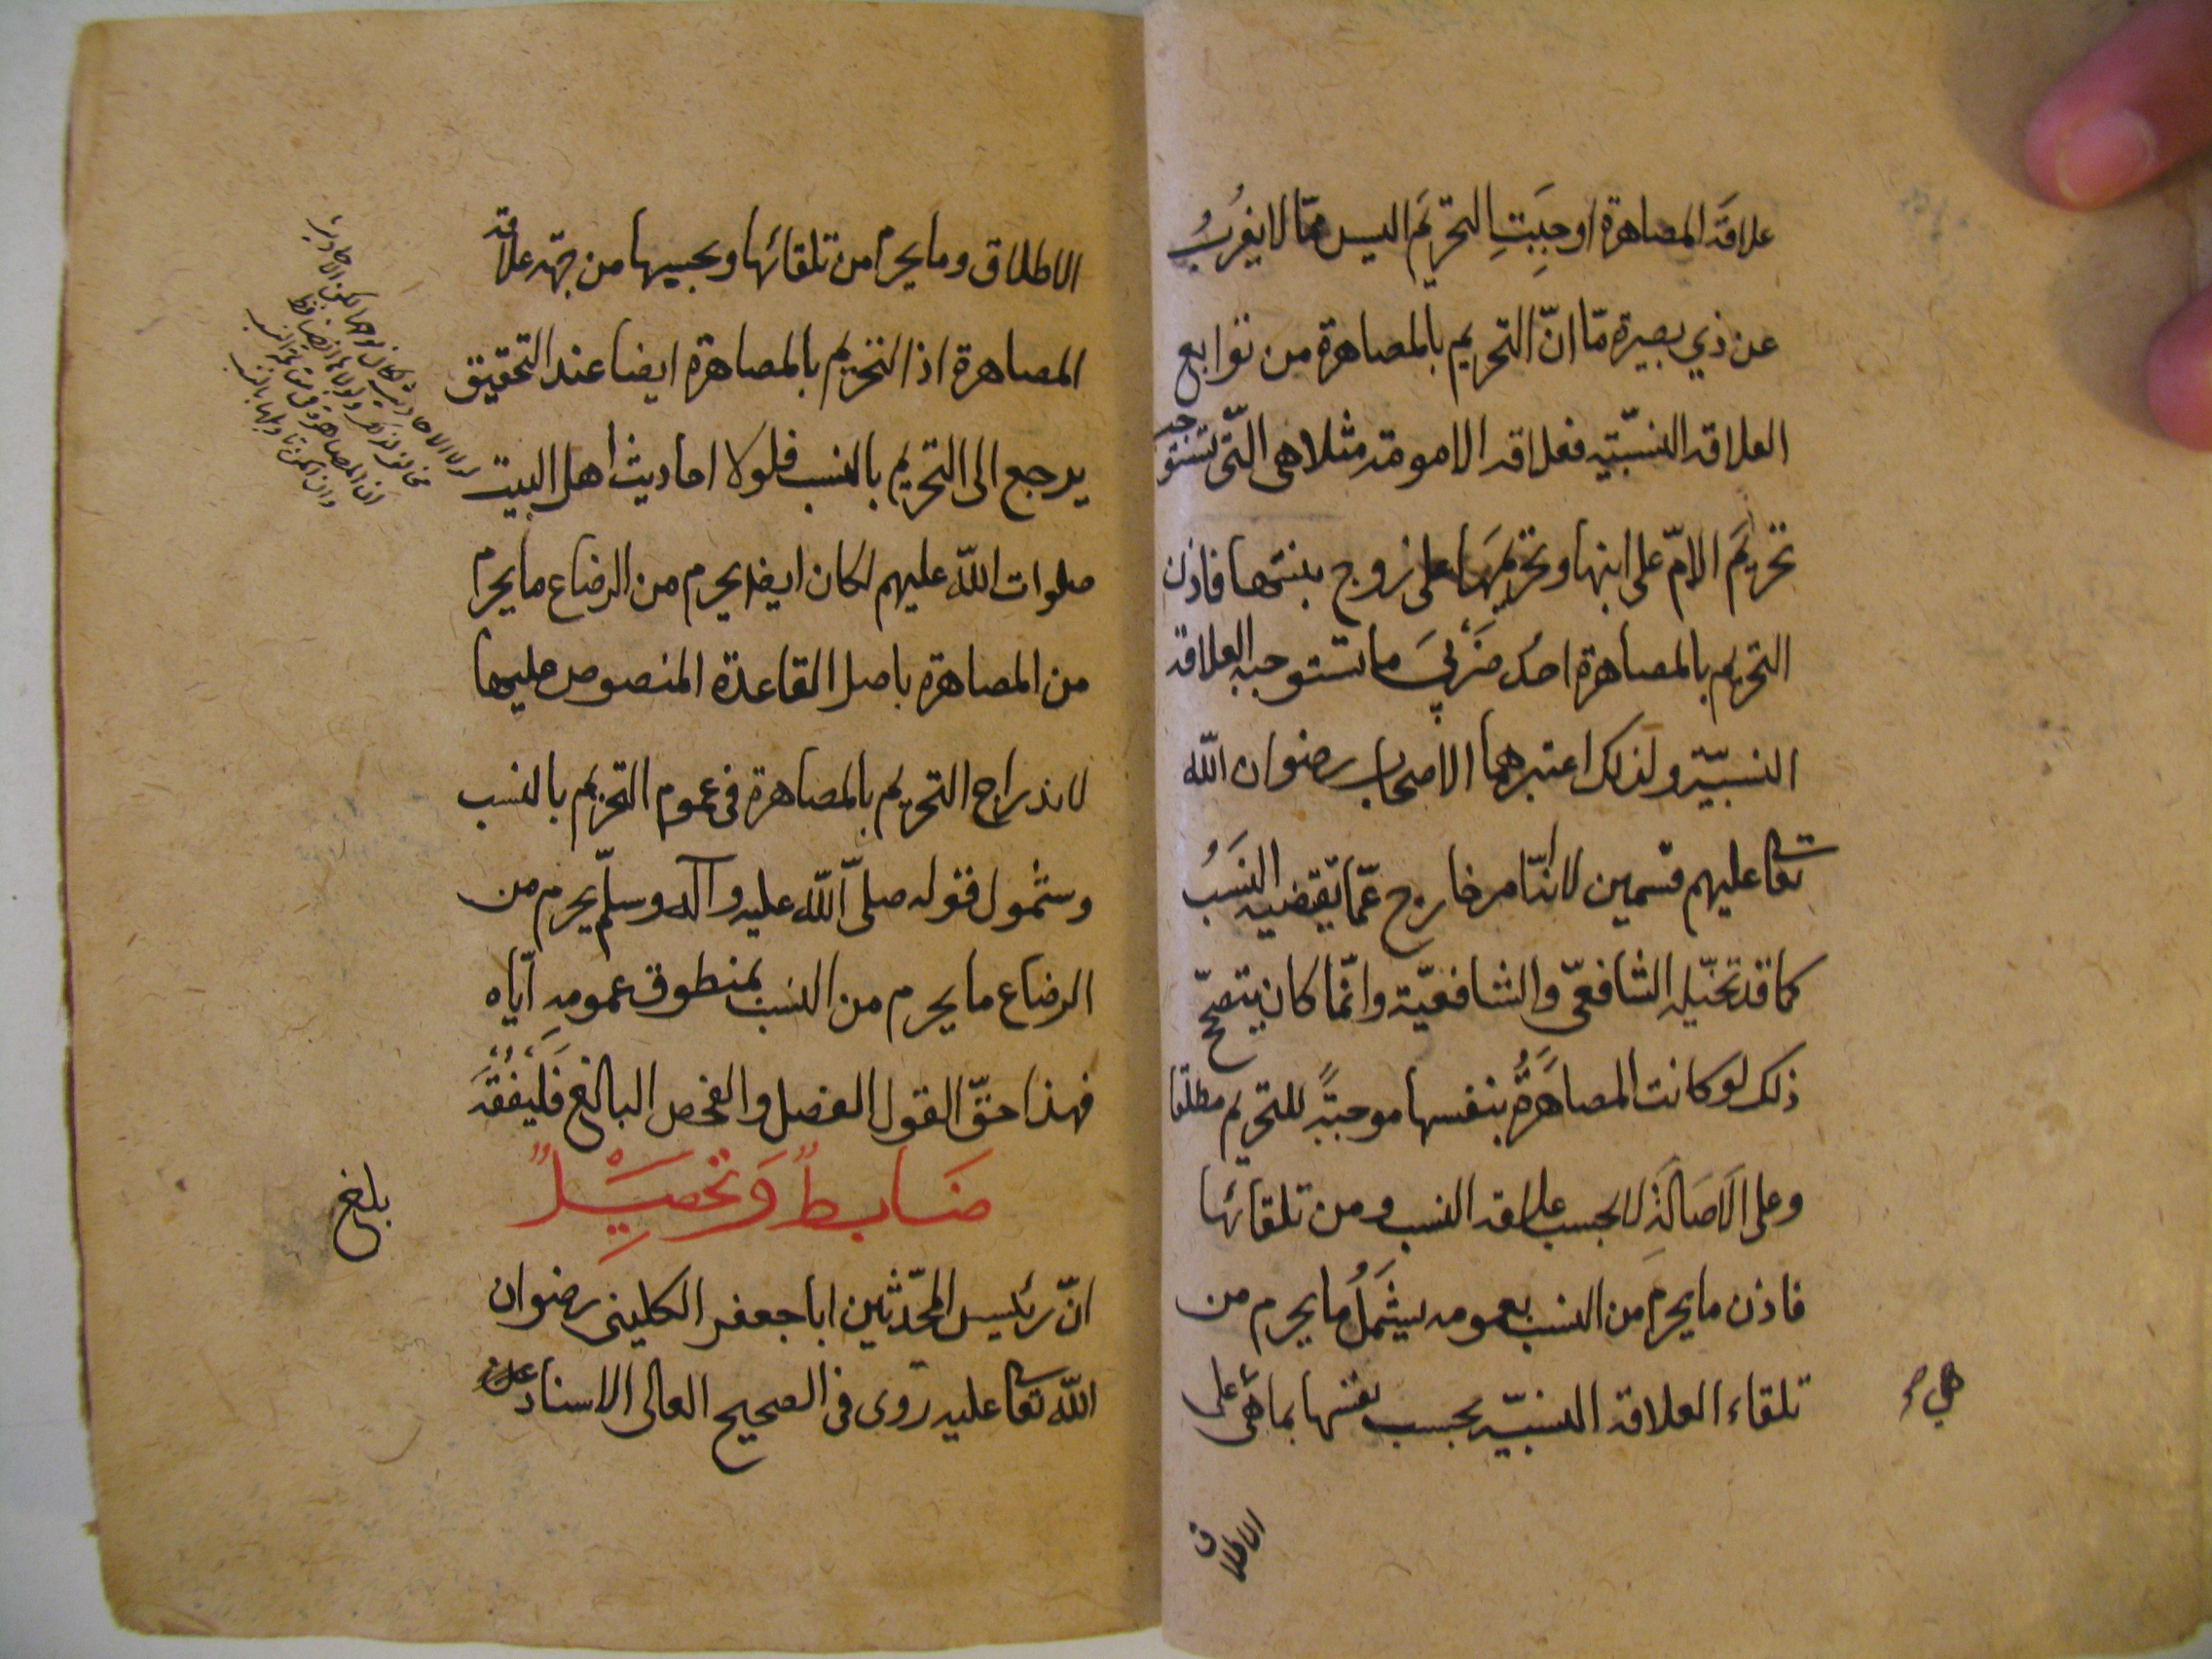 علاقة المصاهرة اوجبت التحريم اليس ممّا لا يغرب
عن ذي بصيرة ما انّ التحريم بالمصاهرة من توابع
العلاقة النسبيّة فعلاقة الامومة مثلا هى التّى تستوجب
تحريم الامّ على ابنها وتحريمها على زوج بنتها فاذن
التحريم بالمصاهرة احد ضربى ما تستوجبه العلاقة
النسبيّة ولذلك اعتبرهما الاصحاب رضوان اللّه
تعالى عليهم قسمين لا انّه امر خارج عمّا يقتضيه النسب
كما قد تخيّله الشافعىّ والشافعيّة وانّما كان يتصحّح
ذلك لو كانت المصاهرة بنفسها موجبة للتحريم مطلقا
وعلى الاصالة لا بحسب علاقة النسب ومن تلقائها
فاذن ما يحرم من النسب بعمومه يشمل ما يحرم من
تلقاء العلاقة النسبيّة بحسب نفسها بما هى على
هى
الاطلاق
الاطلاق وما يحرم من تلقائها وبحسبها من جهة علاقة
المصاهرة اذ التحريم بالمصاهرة ايضا عند التحقيق
يرجع الى التحريم بالنسب فلولا احاديث اهل البيت
صلوات اللّه عليهم لكان ايضا يحرم من الرضاع ما يحرم
من المصاهرة باصل القاعدة المنصوص عليها
لاندراج التحريم بالمصاهرة فى عموم التحريم بالنسب
وشمول قوله صلّى اللّه عليه وآله وسلّم يحرم من
الرضاع ما يحرم من النسب بمنطوق عمومه ايّاه
فهذا حقّ القول الفصل والفحص البالغ فليفقه
بلغ
ضابط وتحصيل
انّ رئيس المحدّثين ابا جعفر الكلينى رضوان
اللّه تعالى عليه روى فى الصحيح العالى الاسناد عن